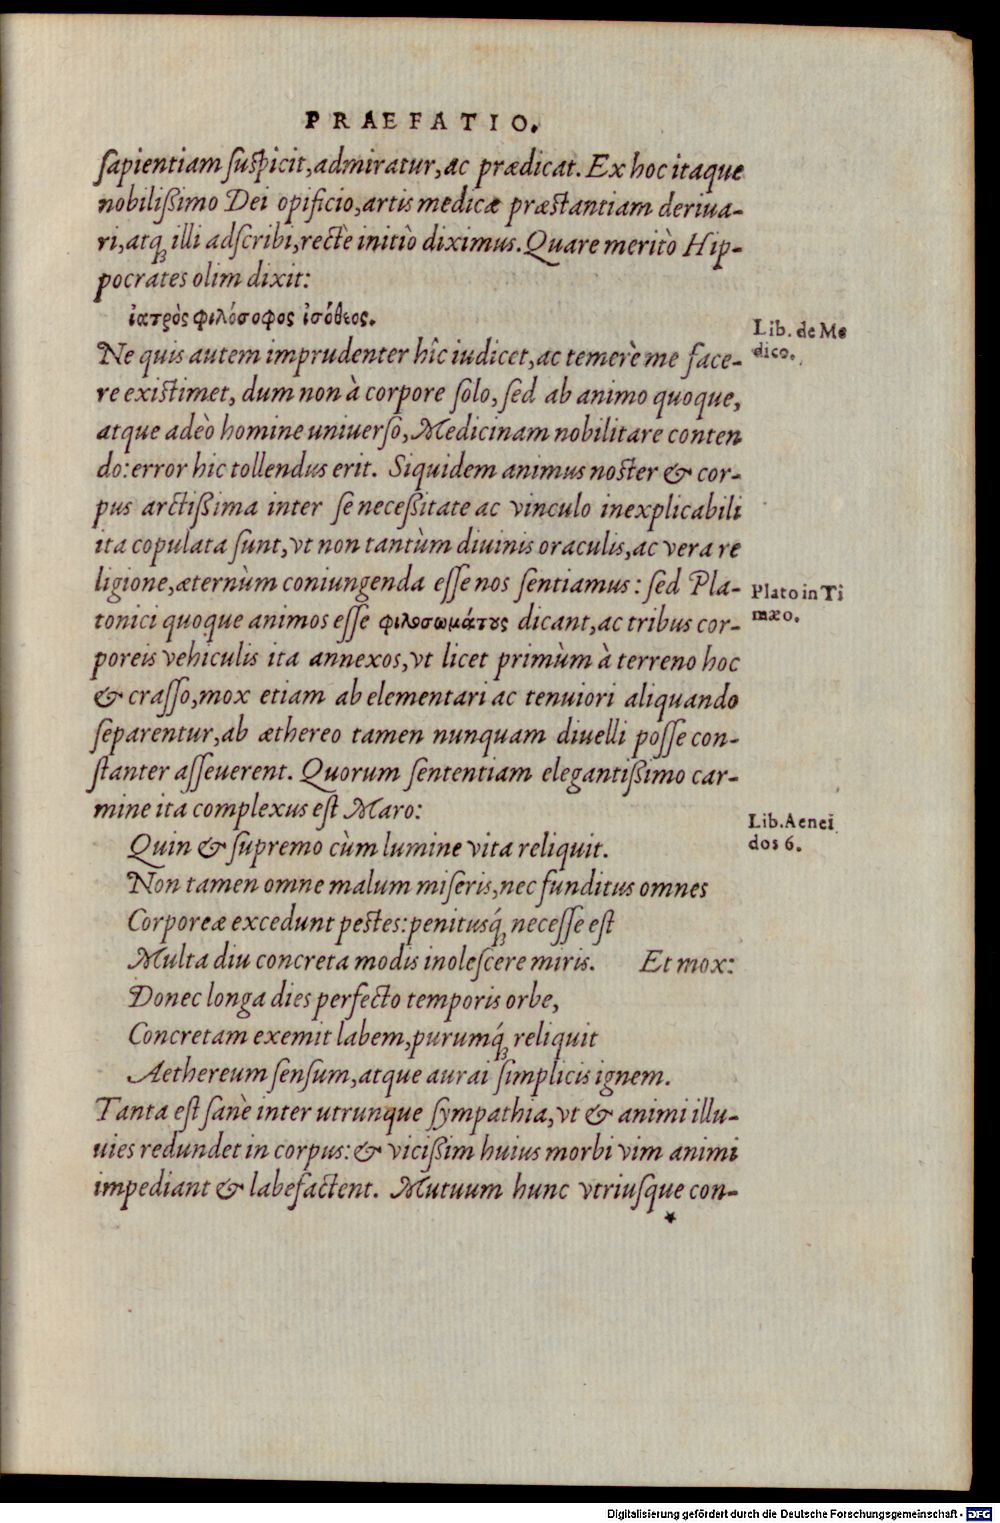 PRAEFATIO.
sapientiam suspicit, admiratur, ac prædicat. Ex hoc itaque
nobilißimo Dei opificio, artis medicæ præstantiam deriua-
ri, atq; illi adscribi, rectè initiò diximus. Quare meritò Hip-
pocrates olim dixit:
ἰατρὸς φιλόσοφος ἰσόθεος.
Lib. de Me
dico.
Ne quis autem imprudenter hîc iudicet, ac temerè me face-
re existimet, dum non à corpore solo, sed ab animo quoque,
atque adeò homine uniuerso, Medicinam nobilitare conten
do: error hic tollendus erit. Siquidem animus noster & cor-
pus arctißima inter se neceßitate ac vinculo inexplicabili
ita copulata sunt, vt non tantùm diuinis oraculis, ac vera re
ligione, æternùm coniungenda esse nos sentiamus: sed Pla-
Plato in Ti
mæo.
tonici quoque animos esse φιλοσωμάτους dicant, ac tribus cor-
poreis vehiculis ita annexos, vt licet primùm à terreno hoc
& crasso, mox etiam ab elementari ac tenuiori aliquando
separentur, ab æthereo tamen nunquam diuelli posse con-
stanter asseuerent. Quorum sententiam elegantißimo car-
mine ita complexus est Maro:
Lib. Aenei
dos 6.
Quin & supremo cùm lumine vita reliquit.
Non tamen omne malum miseris, nec funditus omnes
Corporeæ excedunt pestes: penitusq́; necesse est
Multa diu concreta modis inolescere miris. Et mox:
Donec longa dies perfecto temporis orbe,
Concretam exemit labem, purumq́; reliquit
Aethereum sensum, atque aurai simplicis ignem.
Tanta est sanè inter utrunque sympathia, vt & animi illu-
uies redundet in corpus: & vicißim huius morbi vim animi
impediant & labefactent. Mutuum hunc vtriusque con-
*
Digitalisierung gefördert durch die Deutsche Forschungsgemeinschaft - DFG